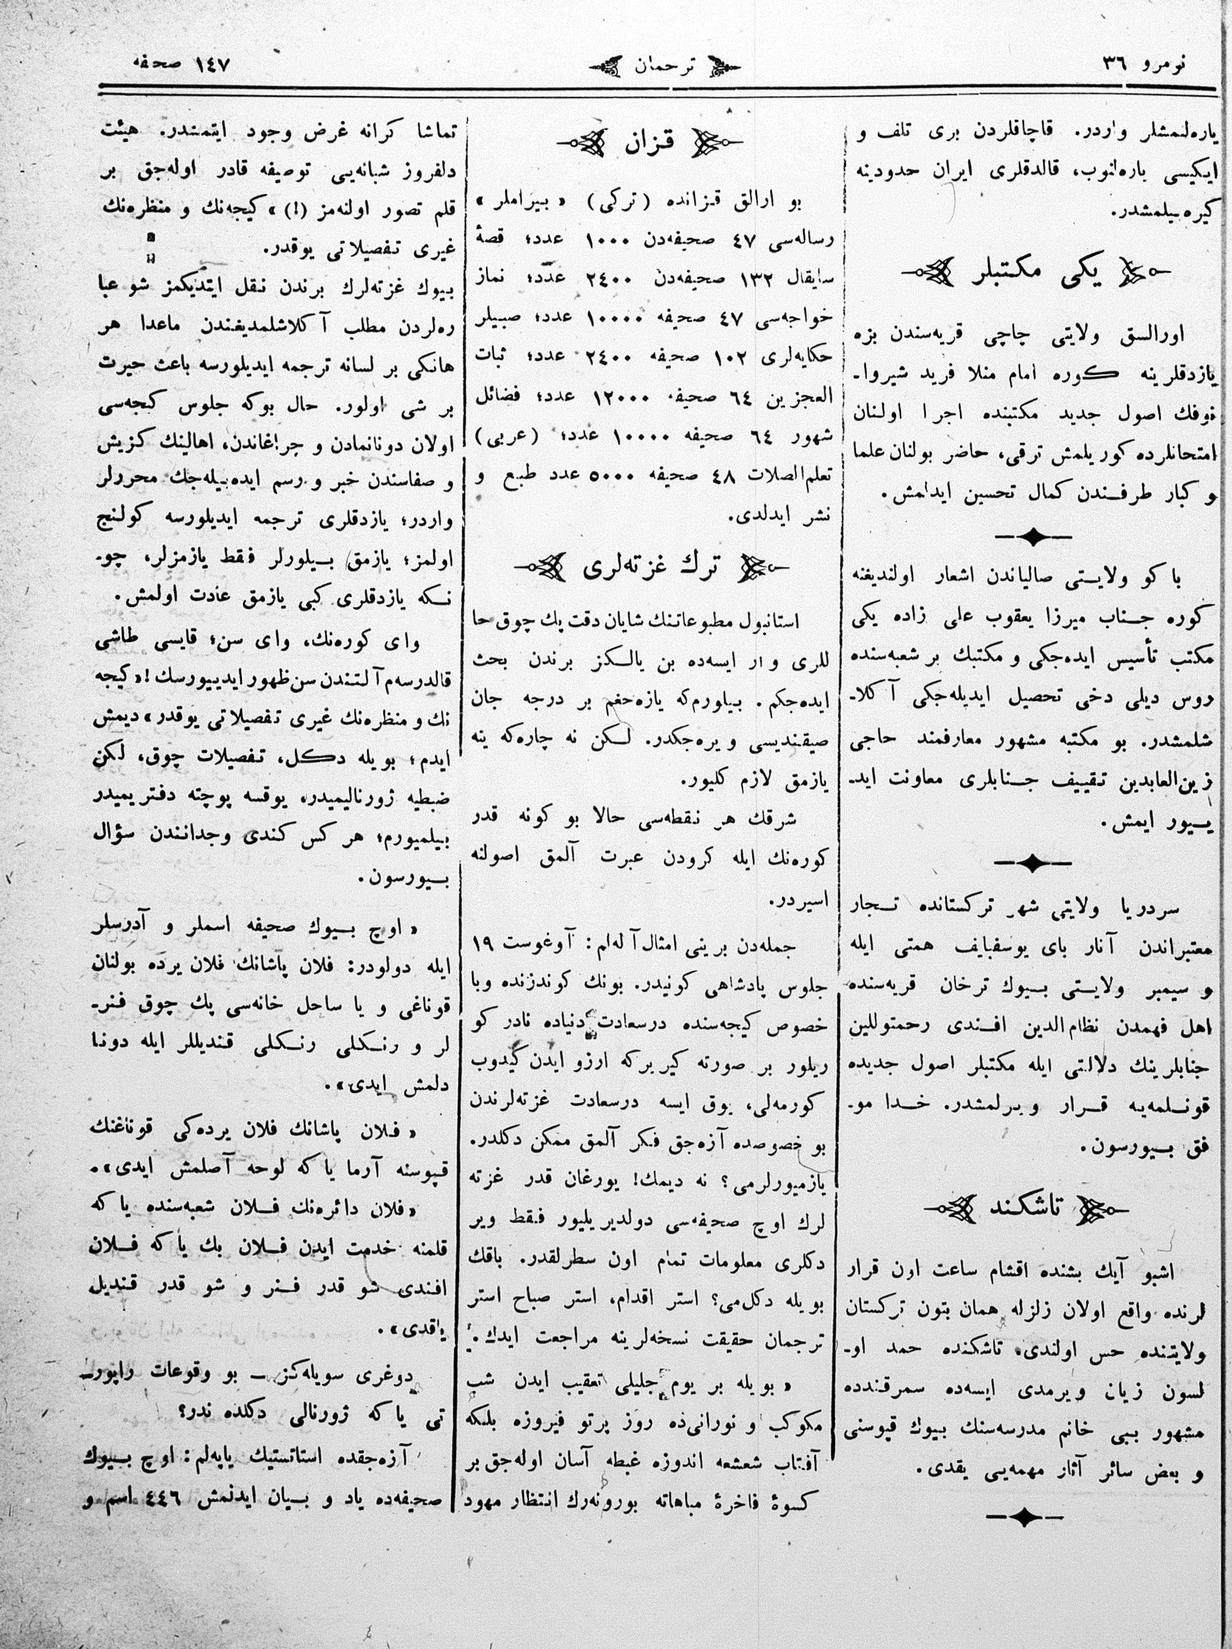 نومرو ٣٦
ترجمان
١٤٧ صحفه
ياره‌لنمشلر واردر. قاچاقلردن برى تلف و
ايكيسى ياره‌لنوب، قالدقلرى ايران حدودينه
كيره بيلمشدر.
يكى مكتبلر
اورالسق ولايتى چاچى قريه‌سندن بزه
يازدقلرينه كوره امام منلا فريد شيروا-
نوفك اصول جديد مكتبنده اجرا اولنان
امتحانلرده كوريلمش ترقى، حاضر بولنان علما
و كبار طرفندن كمال تحسين ايدلمش.
باكو ولايتى صالياندن اشعار اولنديغنه
كوره جناب ميرزا يعقوب على زاده يكى
مكتب تأسيس ايده‌جكى و مكتبك بر شعبه‌سنده
روس ديلى دخى تحصيل ايديله‌جكى آكلا-
شلمشدر. بو مكتبه مشهور معارفمند حاجى
زين‌العابدين تقييف جنابلرى معاونت ايد-
ييور ايمش.
سردريا ولايتى شهر تركستانده تجار
معتبراندن آنار باى يوسفبايف همتى ايله
و سيمبر ولايتى بيوك ترخان قريه‌سنده
اهل فهمدن نظام‌الدين افندى رحمتوللين
جنابلرينك دلالتى ايله مكتبلر اصول جديده
قونلمه‌يه قرار ويرلمشدر. خدا مو-
فق بيورسون.
تاشكند
اشبو آيك بشنده اقشام ساعت اون قرار
لرنده واقع اولان زلزله همان بتون تركستان
ولايتنده حس اولندى، تاشكنده حمد او-
لسون زيان ويرمدى ايسه‌ده سمرقندده
مشهور بيبى خانم مدرسه‌سنك بيوك قپوسنى
و بعض سائر آثار مهمه‌يى يقدى.
قزان
بو ارالق قزانده (تركى) «بيراملر»
رساله‌سى ٤٧ صحيفه‌دن ١٠٠٠ عدد؛ قصهٔ
سايقال ١٣٢ صحيفه‌دن ٢٤٠٠ عدد؛ نماز
خواجه‌سى ٤٧ صحيفه ١٠٠٠٠ عدد؛ صبيلر
حكايه‌لرى ١٠٢ صحيفه ٢٤٠٠ عدد؛ ثبات
العجزين ٦٤ صحيفه ١٢٠٠٠ عدد؛ فضائل
شهور ٦٤ صحيفه ١٠٠٠٠ عدد؛ (عربى)
تعلم‌الصلات ٤٨ صحيفه ٥٠٠٠ عدد طبع و
نشر ايدلدى.
ترك غزته‌لرى
استانبول مطبوعاتنك شايان دقت پك چوق حا
للرى وار ايسه‌ده بن يالكز برندن بحث
ايده‌جكم. بيلورم‌كه يازه‌جغم بر درجه جان
صيقنديسى ويره‌جكدر. لكن نه چاره‌كه ينه
يازمق لازم كليور.
شرقك هر نقطه‌سى حالا بو كونه قدر
كوره‌نك ايله كرودن عبرت آلمق اصولنه
اسيردر.
جمله‌دن برينى امثال آله‌لم: آوغوست ١٩
جلوس پادشاهى كونيدر. بونك كوندزنده وبا
خصوص كيجه‌سنده درسعادت دنياده نادر كو
ريلور بر صورته كيرير‌كه ارزو ايدن كيدوب
كورمه‌لى، يوق ايسه درسعادت غزته‌لرندن
بو خصوصده آزه‌جق فكر آلمق ممكن دكلدر.
يازميورلرمى؟ نه ديمك! يورغان قدر غزته
لرك اوچ صحيفه‌سى دولديريليور فقط وير
دكلرى معلومات تمام اون سطرلقدر. باقك
بويله دكل‌مى؟ استر اقدام، استر صباح استر
ترجمان حقيقت نسخه‌لرينه مراجعت ايدك.
«بويله بر يوم جليلى تعقيب ايدن شب
مكوكب و نورانى‌ده روز پرتو فيروزه بلكه
آفتاب شعشعه اندوزه غبطه آسان اوله‌جق بر
كسوهٔ فاخرهٔ مباهاته بورونه‌رك انتظار مهود
تماشا كرانه غرض وجود ايتمشدر. هيئت
دلفروز شبانه‌يى توصيفه قادر اوله‌جق بر
قلم تصور اولنه‌مز (!)» كيجه‌نك و منظره‌نك
غيرى تفصيلاتى يوقدر.
بيوك غزته‌لرك برندن نقل ايتديكمز شو عبا
ره‌لردن مطلب آكلاشلمديغندن ماعدا هر
هانكى بر لسانه ترجمه ايديلورسه باعث حيرت
بر شى اولور. حال بوكه جلوس كيجه‌سى
اولان دونانمادن و چراغاندن، اهالينك كزيش
و صفاسندن خبر و رسم ايده‌بيله‌جك محررلر
واردر؛ يازدقلرى ترجمه ايديلورسه كولنج
اولمز؛ يازمق بيلورلر فقط يازمزلر، چو-
نكه يازدقلرى كبى يازمق عادت اولمش.
واى كوره‌نك، واى سن؛ قايسى طاشى
قالدرسه‌م آلتندن سن ظهور ايدييورسك! «كيجه
نك و منظره‌نك غيرى تفصيلاتى يوقدر» ديمش
ايدم؛ بويله دكل، تفصيلات چوق، لكن
ضبطيه ژورناليميدر، يوقسه پوچته دفتريميدر
بيلميورم؛ هر كس كندى وجدانندن سؤال
بيورسون.
«اوچ بيوك صحيفه اسملر و آدرسلر
ايله دولودر: فلان پاشانك فلان يرده بولنان
قوناغى و يا ساحل خانه‌سى پك چوق فنر-
لر و رنكلى رنكلى قنديللر ايله دونا
دلمش ايدى».
«فلان پاشانك فلان يرده‌كى قوناغنك
قپوسنه آرما ياكه لوحه آصلمش ايدى».
«فلان دائره‌نك فلان شعبه‌سنده ياكه
قلمنه خدمت ايدن فلان بك ياكه فلان
افندى شو قدر فنر و شو قدر قنديل
ياقدى».
دوغرى سويله‌كز — بو وقوعات راپور-
تى ياكه ژورنالى دكلده ندر؟
آزه‌جقده استاتستيك ياپه‌لم: اوچ بيوك
صحيفه‌ده ياد و بيان ايدنمش ٤٤٦ اسم و